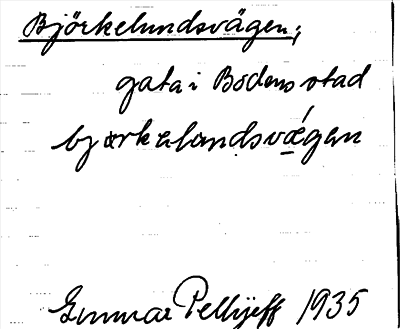 Björkelundsvägen,
gata i Bodens stad
bjørkelundsvǽ̲gen
Gunnar Pellijeff 1935